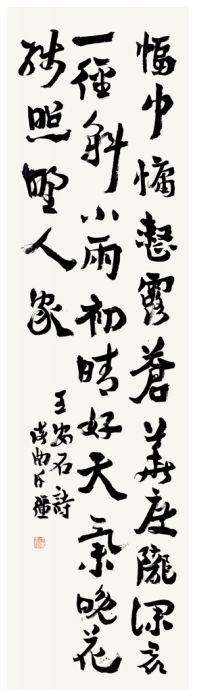 幅巾慵整露蒼華度隴深尋
一徑斜小雨初晴好天氣晚花
殘照野人家
王安石詩